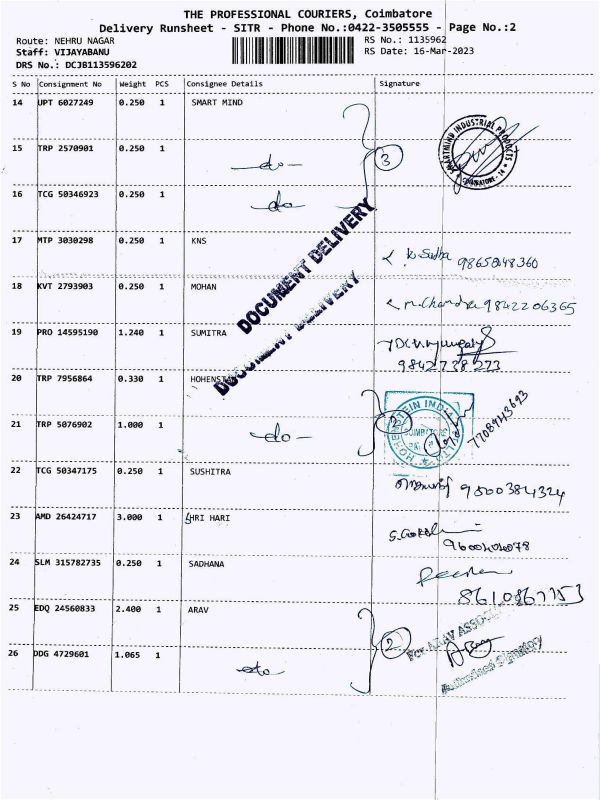 THE PROFESSIONAL COURIERS, Coimbatore
Delivery Runsheet - SITR - Phone No.:0422-3505555 - Page No.:2
Route: NEHRU NAGAR RS No.: 1135962
Staff: VIJAYABANU RS Date: 16-Mar-2023
DRS No.: DCJB113596202
S No Consignment No Weight PCS Consignee Details Signature
14 UPT 6027249 0.250 1 SMART MIND
15 TRP 2570901 0.250 1 -do- 3
SMARTMIND INDUSTRIAL PRODUCTS
COIMBATORE - 14
16 TCG 50346923 0.250 1 -do-
DOCUMENT DELIVERY
DOCUMENT DELIVERY
17 MTP 3030298 0.250 1 KNS
K. Sudha
18 KVT 2793903 0.250 1 MOHAN
M. Chandra 9842206365
19 PRO 14595190 1.240 1 SUMITRA
9842738273
20 TRP 7956864 0.330 1
21 TRP 5076902 1.000 1 -do- 2
COIMBATORE
22 TCG 50347175 0.250 1 SUSHITRA
9500384324
23 AMD 26424717 3.000 1 SHRI HARI
24 SLM 315782735 0.250 1 SADHANA
25 EDQ 24560833 2.400 1 ARAV
2 For ARAV
Authorised Signatory
26 DDG 4729601 1.065 1 -do-